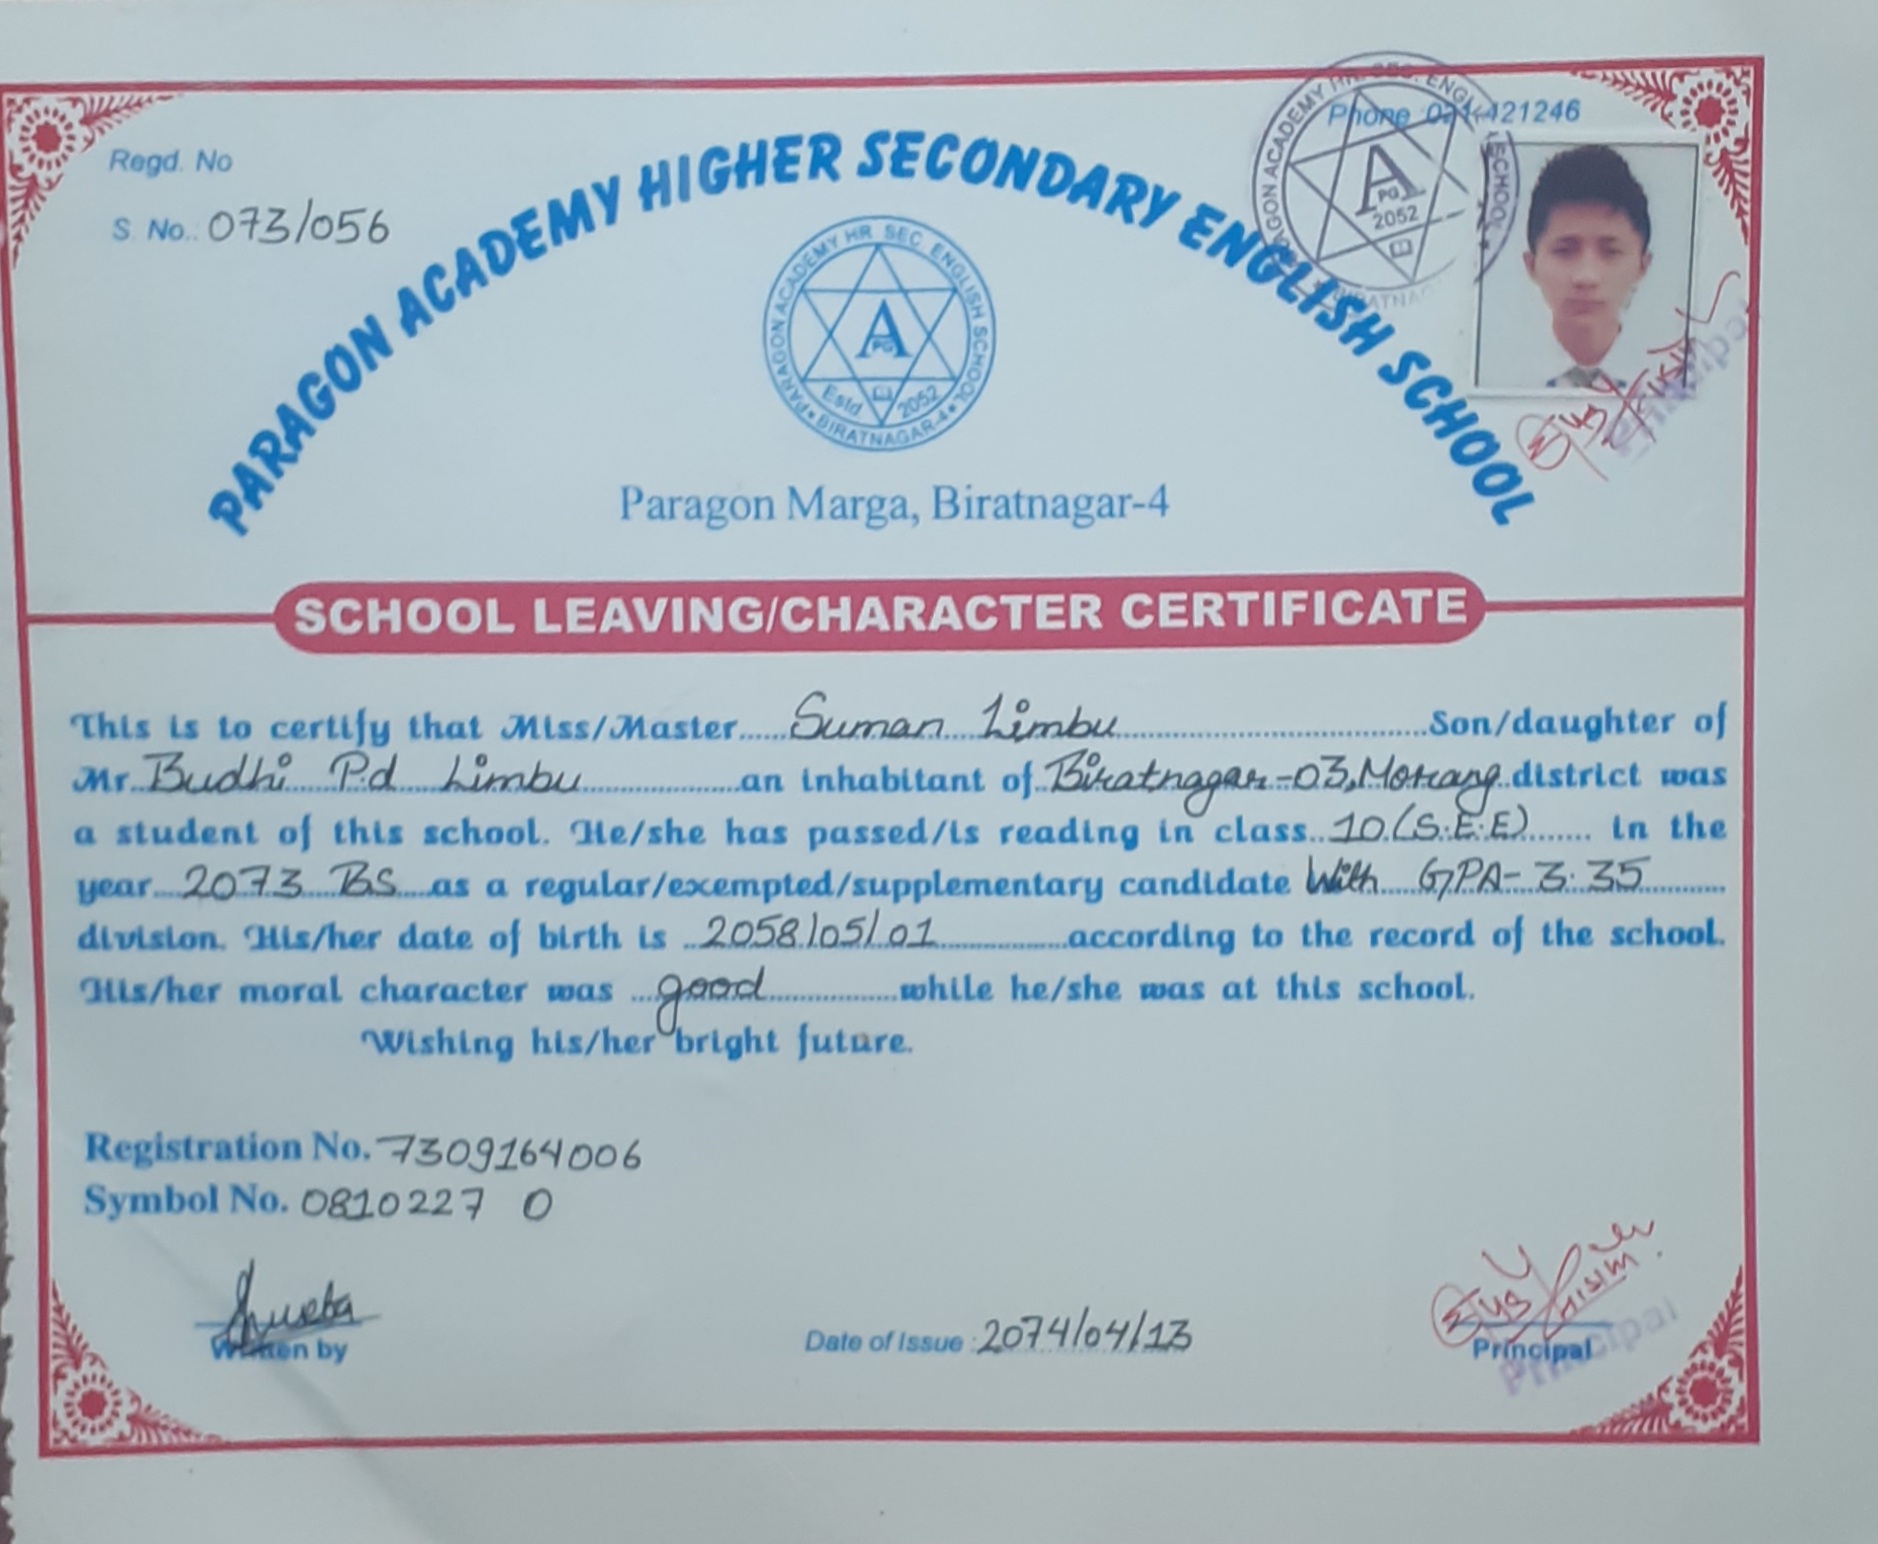 Phone 021-421246
Regd. No
S. No.: 073/056
PARAGON ACADEMY HIGHER SECONDARY ENGLISH SCHOOL
PARAGON ACADEMY HR. SEC. ENGLISH SCHOOL
A
PG
2052
BIRATNAGAR
PARAGON ACADEMY HR. SEC. ENGLISH SCHOOL
A
PG
Estd 2052
BIRATNAGAR-4
Paragon Marga, Biratnagar-4
Principal
SCHOOL LEAVING/CHARACTER CERTIFICATE
This is to certify that Miss/Master Suman Limbu Son/daughter of
Mr. Budhi P.d Limbu an inhabitant of Biratnagar-03, Morang district was
a student of this school. He/she has passed/is reading in class 10 (S.E.E) in the
year 2073 BS as a regular/exempted/supplementary candidate With GPA- 3.35
division. His/her date of birth is 2058/05/01 according to the record of the school.
His/her moral character was good while he/she was at this school.
Wishing his/her bright future.
Registration No. 7309164006
Symbol No. 0810227 O
Written by
Date of Issue : 2074/04/13
Principal
Principal